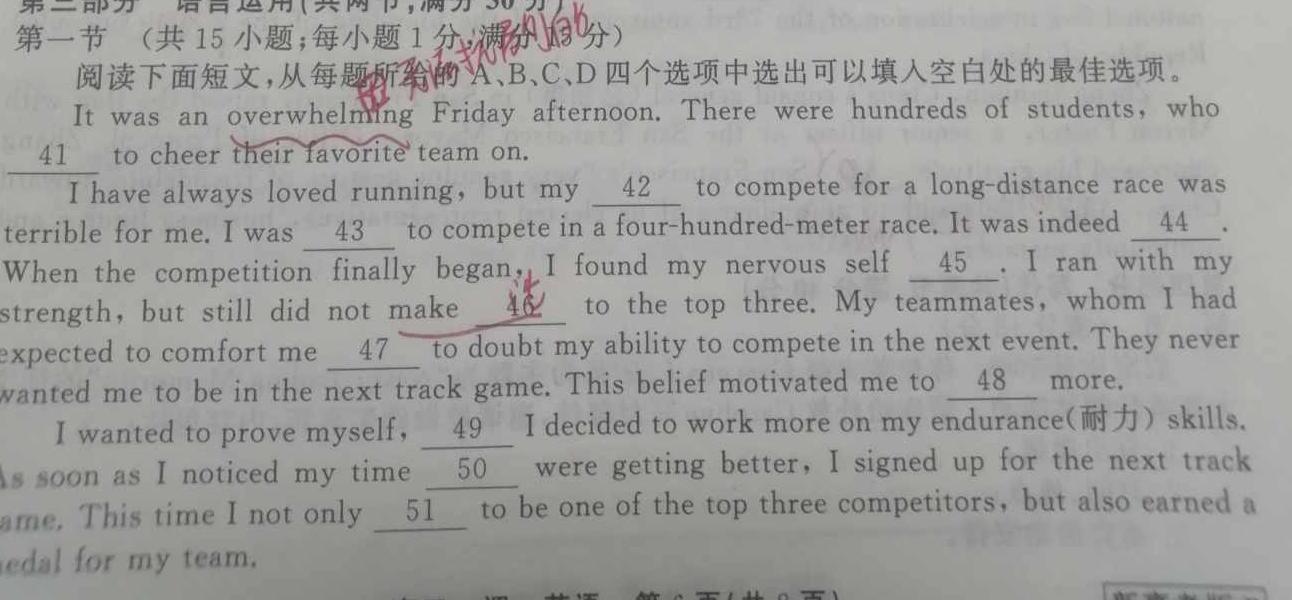 第三部分 语言运用(共两节,满分30分)
第一节 (共15小题;每小题1分,满分15分)
阅读下面短文,从每题所给的A、B、C、D四个选项中选出可以填入空白处的最佳选项。
It was an overwhelming Friday afternoon. There were hundreds of students, who
41 to cheer their favorite team on.
I have always loved running, but my 42 to compete for a long-distance race was
terrible for me. I was 43 to compete in a four-hundred-meter race. It was indeed 44 .
When the competition finally began, I found my nervous self 45 . I ran with my
strength, but still did not make 46 to the top three. My teammates, whom I had
expected to comfort me 47 to doubt my ability to compete in the next event. They never
wanted me to be in the next track game. This belief motivated me to 48 more.
I wanted to prove myself, 49 I decided to work more on my endurance(耐力) skills.
As soon as I noticed my time 50 were getting better, I signed up for the next track
ame. This time I not only 51 to be one of the top three competitors, but also earned a
edal for my team.